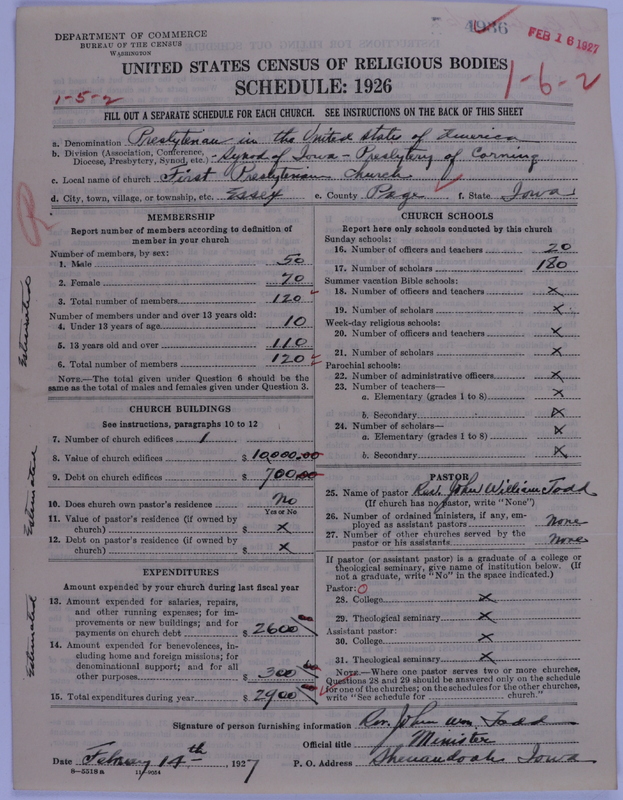 DEPARTMENT OF COMMERCE
BUREAU OF THE CENSUS
WASHINGTON
4936
FEB 16 1927
UNITED STATES CENSUS OF RELIGIOUS BODIES
SCHEDULE: 1926
1-5-2
1-6-2
FILL OUT A SEPARATE SCHEDULE FOR EACH CHURCH. SEE INSTRUCTIONS ON THE BACK OF THIS SHEET
a. Denomination Presbyterian in the United States of America
b. Division (Association, Conference, Diocese, Presbytery, Synod, etc.) Synod of Iowa - Presbytery of Corning
c. Local name of church First Presbyterian Church
d. City, town, village, or township, etc. Essex e. County Page f. State Iowa
R
MEMBERSHIP
Report number of members according to definition of member in your church
Number of members, by sex:
1. Male 50
2. Female 70
3. Total number of members 120
Number of members under and over 13 years old:
4. Under 13 years of age 10
5. 13 years old and over 110
6. Total number of members 120
Estimated
NOTE.—The total given under Question 6 should be the same as the total of males and females given under Question 3.
CHURCH BUILDINGS
See instructions, paragraphs 10 to 12
7. Number of church edifices 1
8. Value of church edifices $ 10,000.00
9. Debt on church edifices $ 700.00
10. Does church own pastor's residence No
Yes or No
11. Value of pastor's residence (if owned by church) $ X
12. Debt on pastor's residence (if owned by church) $ X
Estimated
EXPENDITURES
Amount expended by your church during last fiscal year
13. Amount expended for salaries, repairs, and other running expenses; for improvements or new buildings; and for payments on church debt $ 2600 00
14. Amount expended for benevolences, including home and foreign missions; for denominational support; and for all other purposes $ 300 00
15. Total expenditures during year $ 2900 00
Estimated
CHURCH SCHOOLS
Report here only schools conducted by this church
Sunday schools:
16. Number of officers and teachers 20
17. Number of scholars 180
Summer vacation Bible schools:
18. Number of officers and teachers X
19. Number of scholars X
Week-day religious schools:
20. Number of officers and teachers X
21. Number of scholars X
Parochial schools:
22. Number of administrative officers X
23. Number of teachers—
a. Elementary (grades 1 to 8) X
b. Secondary X
24. Number of scholars—
a. Elementary (grades 1 to 8) X
b. Secondary X
PASTOR
25. Name of pastor Rev. John William Todd
(If church has no pastor, write "None")
26. Number of ordained ministers, if any, employed as assistant pastors None
27. Number of other churches served by the pastor or his assistants None
If pastor (or assistant pastor) is a graduate of a college or theological seminary, give name of institution below. (If not a graduate, write "No" in the space indicated.)
Pastor: O
28. College X
29. Theological seminary X
Assistant pastor:
30. College X
31. Theological seminary X
NOTE.—Where one pastor serves two or more churches, Questions 28 and 29 should be answered only on the schedule for one of the churches; on the schedules for the other churches, write "See schedule for church."
Signature of person furnishing information Rev. John Wm. Todd
Official title Minister
Date February 14th, 1927 P. O. Address Shenandoah Iowa
8—5518 a 11—9024